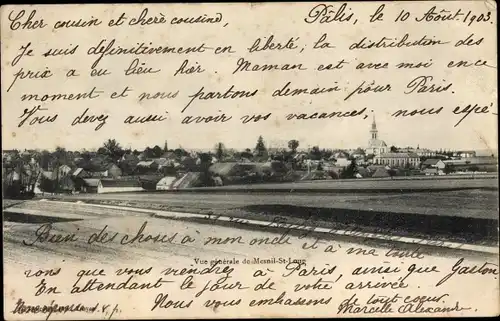 Cher cousin et chère cousine,
Pâlis, le 10 Août 1903.
Je suis définitivement en liberté, la distribution des
prix a eu lieu hier. Maman est avec moi en ce
moment et nous partons demain pour Paris.
Vous devez aussi avoir vos vacances, nous espé-
Bien des choses à mon oncle et à ma tante
Vue générale de Mesnil-St-Loup
rons que vous viendrez à Paris, ainsi que Gaston.
En attendant le jour de votre arrivée.
Nous vous embrassons de tout cœur,
Réponse s.v.p.
Marcelle Alexandre